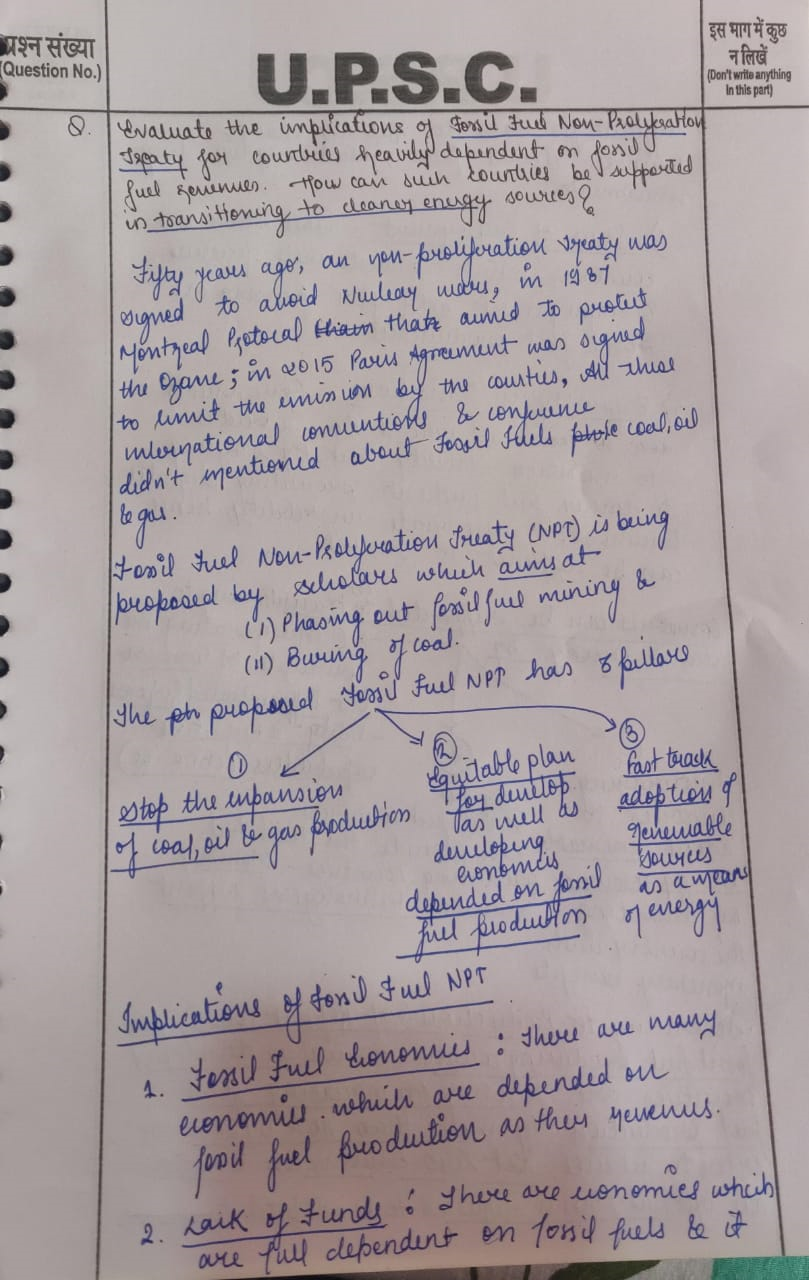 प्रश्न संख्या
(Question No.)
U.P.S.C.
इस भाग में कुछ
न लिखें
(Don't write anything
in this part)
Q. Evaluate the implications of Fossil Fuel Non-Proliferation
Treaty for countries heavily dependent on fossil
fuel revenues. How can such countries be supported
in transitioning to cleaner energy sources?
Fifty years ago, an non-proliferation treaty was
signed to avoid Nuclear wars, in 1987
Montreal Protocal that aimed to protect
the Ozane; in 2015 Paris Agreement was signed
to limit the emission by the countries, All these
international conventions & conference
didn't mentioned about Fossil Fuels coal, oil
& gas.
Fossil Fuel Non-Proliferation Treaty (NPT) is being
proposed by scholars which aims at
(i) Phasing out fossil fuel mining &
(ii) Buring of coal.
The proposed Fossil Fuel NPT has 3 pillars
①
stop the expansion
of coal, oil & gas production
②
Equitable plan
for develop
as well as
developing
economies
depended on fossil
fuel production
③
fast track
adoption of
renewable
sources
as a means
of energy
Implications of Fossil Fuel NPT
1. Fossil Fuel Economies : There are many
economies which are depended on
fossil fuel production as their revenues.
2. Lack of Funds : There are economies which
are full dependent on fossil fuels & it